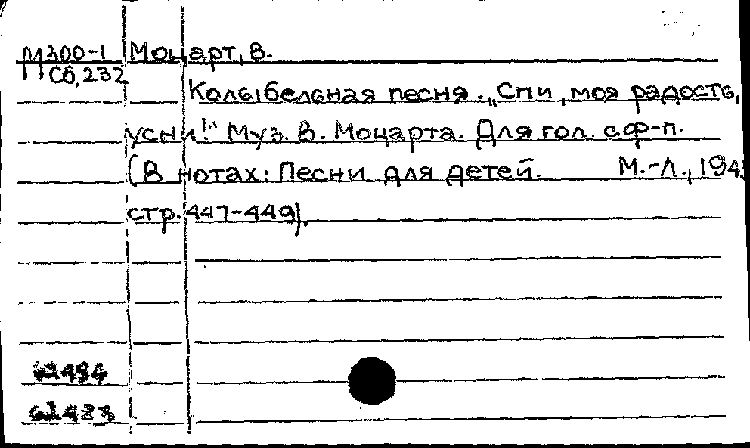 М300-1 Моцарт, В.
Сб,232
Колыбельная песня. „Спи, моя радость,
усни!" Муз. В. Моцарта. Для гол. с ф-п.
(В нотах: Песни для детей. М.-Л., 194
стр. 447-449).